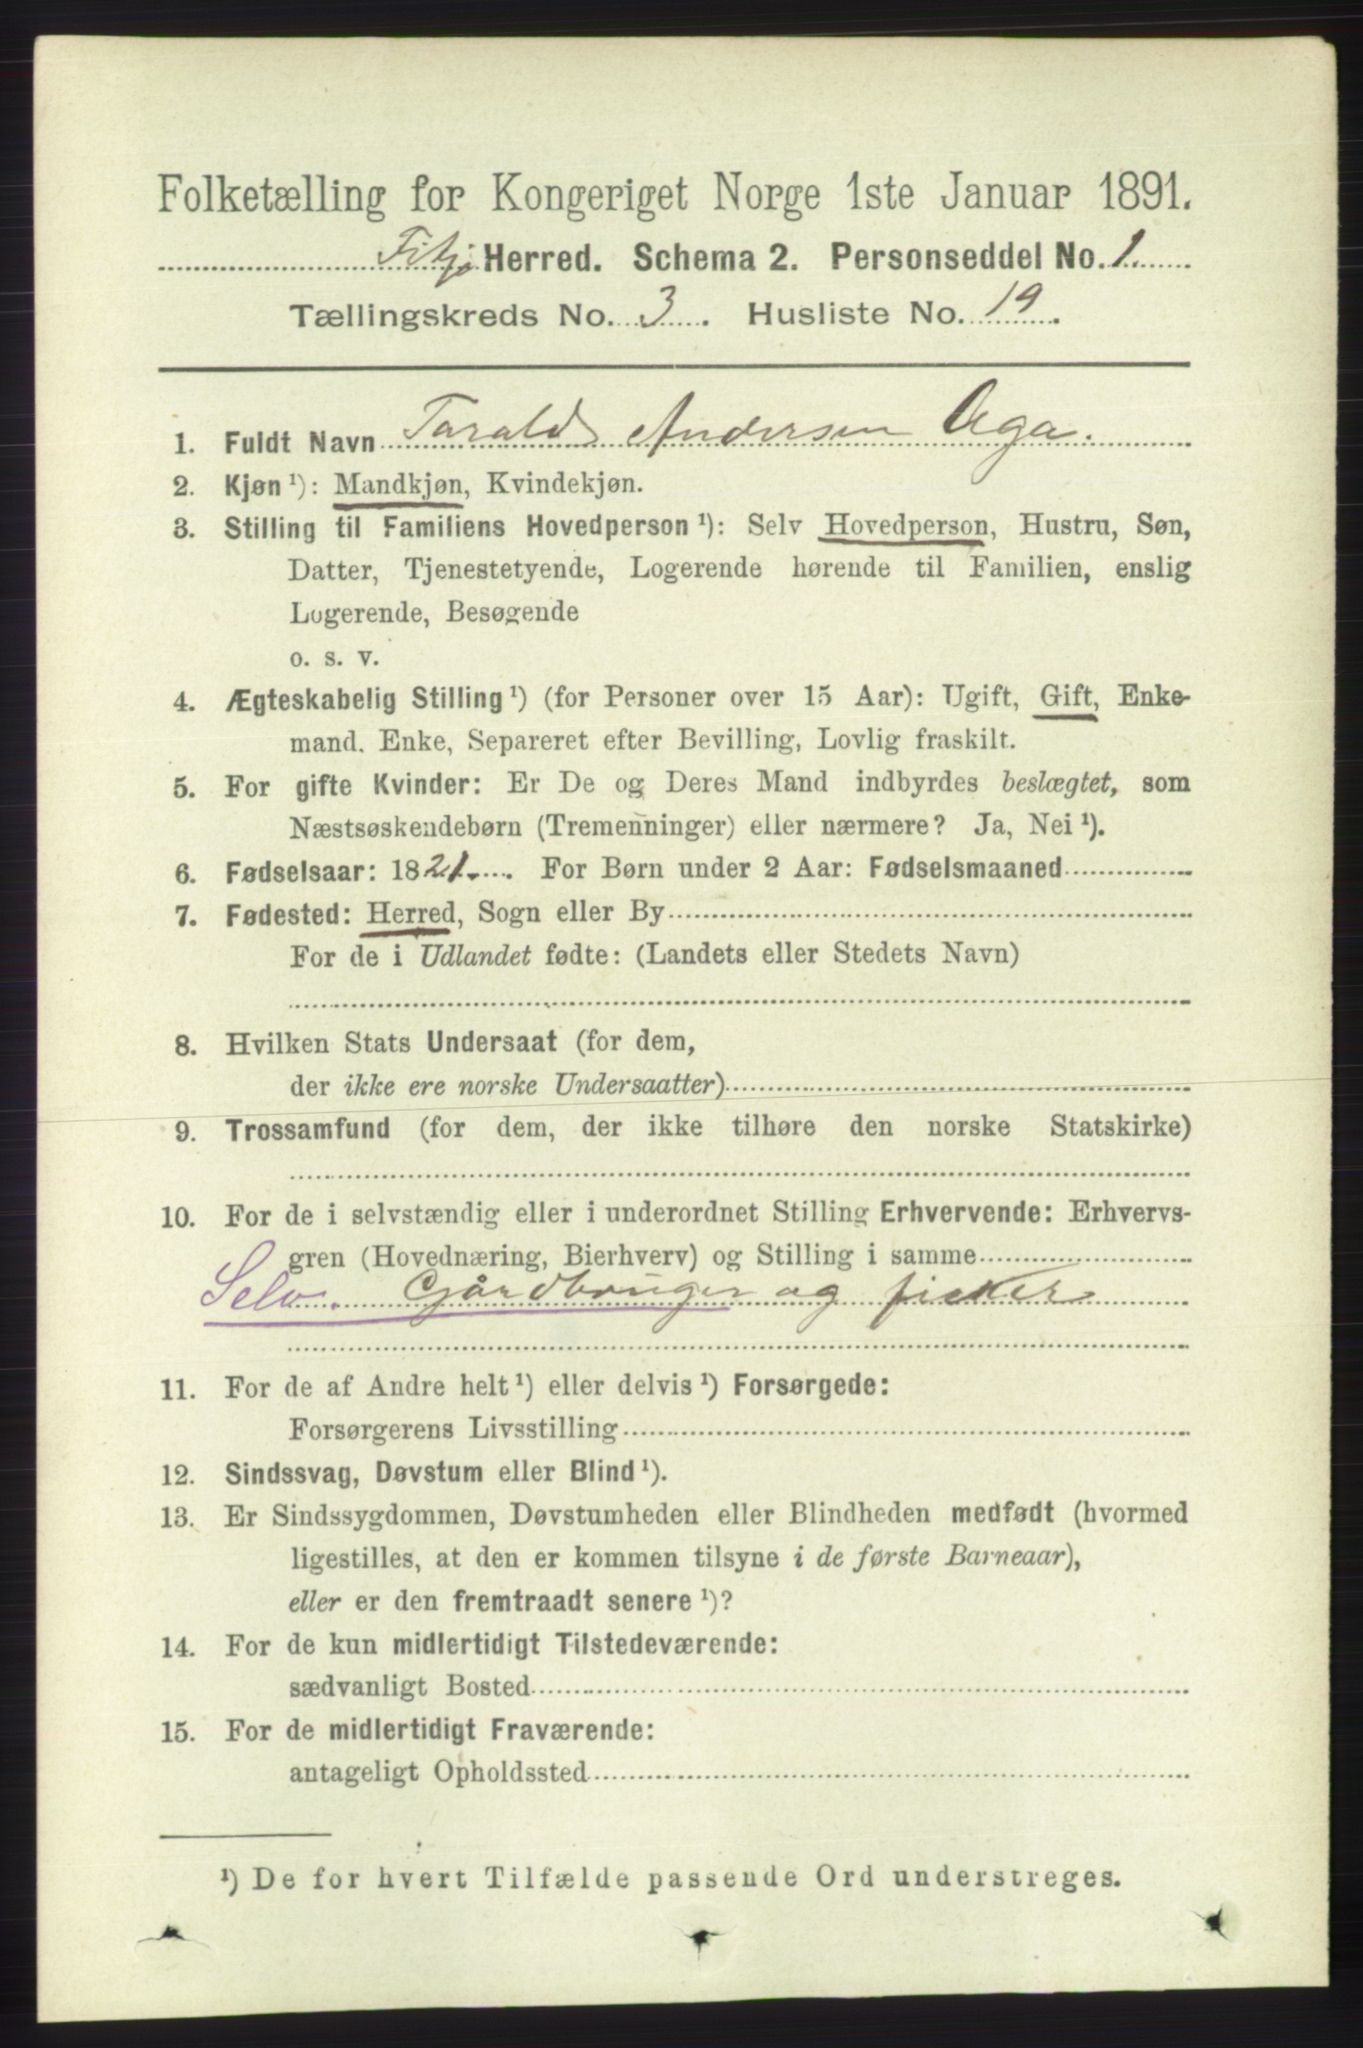 Folketælling for Kongeriget Norge 1ste Januar 1891.
Fitje Herred. Schema 2. Personseddel No. 1.
Tællingskreds No. 3. Husliste No. 19.
1. Fuldt Navn Tarald Andersen Aga.
2. Kjøn ¹): Mandkjøn, Kvindekjøn.
3. Stilling til Familiens Hovedperson ¹): Selv Hovedperson, Hustru, Søn,
Datter, Tjenestetyende, Logerende hørende til Familien, enslig
Logerende, Besøgende
o. s. v.
4. Ægteskabelig Stilling ¹) (for Personer over 15 Aar): Ugift, Gift, Enke-
mand, Enke, Separeret efter Bevilling, Lovlig fraskilt.
5. For gifte Kvinder: Er De og Deres Mand indbyrdes beslægtet, som
Næstsøskendebørn (Tremenninger) eller nærmere? Ja, Nei ¹).
6. Fødselsaar: 1821. For Børn under 2 Aar: Fødselsmaaned
7. Fødested: Herred, Sogn eller By
For de i Udlandet fødte: (Landets eller Stedets Navn)
8. Hvilken Stats Undersaat (for dem,
der ikke ere norske Undersaatter)
9. Trossamfund (for dem, der ikke tilhøre den norske Statskirke)
10. For de i selvstændig eller i underordnet Stilling Erhvervende: Erhvervs-
gren (Hovednæring, Bierhverv) og Stilling i samme
Selv. Gårdbruger og fisker
11. For de af Andre helt ¹) eller delvis ¹) Forsørgede:
Forsørgerens Livsstilling
12. Sindssvag, Døvstum eller Blind ¹).
13. Er Sindssygdommen, Døvstumheden eller Blindheden medfødt (hvormed
ligestilles, at den er kommen tilsyne i de første Barneaar),
eller er den fremtraadt senere ¹)?
14. For de kun midlertidigt Tilstedeværende:
sædvanligt Bosted
15. For de midlertidigt Fraværende:
antageligt Opholdssted
¹) De for hvert Tilfælde passende Ord understreges.